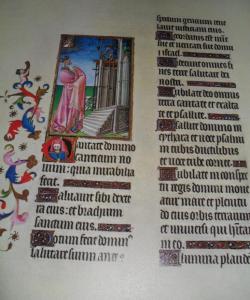 Cantate domino
canticum no
uum: quia mirabilia
fecit.
Saluauit sibi dexte
ra eius: et brachium
sanctum eius.
Notum fecit domin
salutare suum ante
gentium reue
lauit iusticiam suam.
Recordatus est
sue et sue domui
israel.
omnes
terre salutare dei
nostri.
Jubilate deo omnis
terra cantate et exulta
te et psallite.
Psallite domino in
cythara et uoce psalmi
in tubis ductilibus
et uoce tube cornee.
Jubilate in conspec
tu regis domini moue
atur mare et plenitu
do eius orbis terrarum
et uniuersi qui habitant
in eo.
Flumina plaude